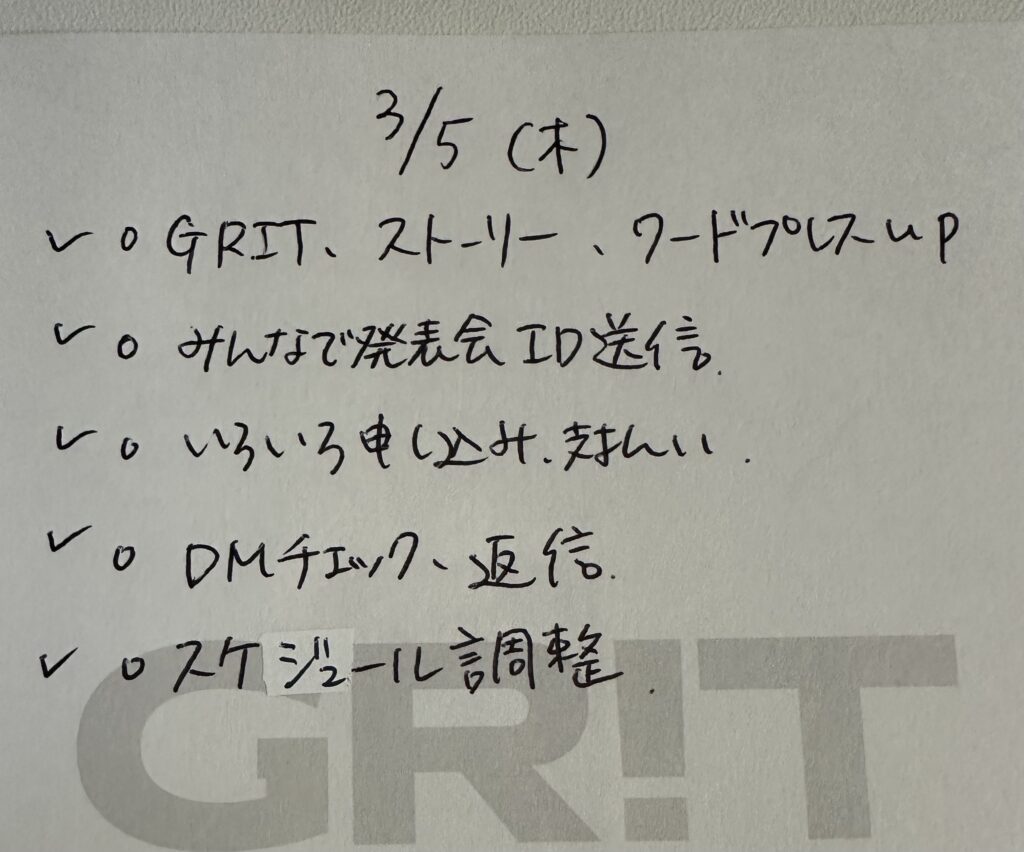 3/5 (木)
✓ o GRIT、ストーリー、ワードプレスup
✓ o みんなで発表会ID送信.
✓ o いろいろ申し込み、支払い.
✓ o DMチェック、返信.
✓ o スケジュール調整.
GRIT